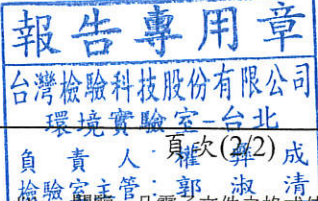 報告專用章
台灣檢驗科技股份有限公司
環境實驗室-台北
頁次(2/2)
負責人:權彝成
檢驗室主管:郭淑清